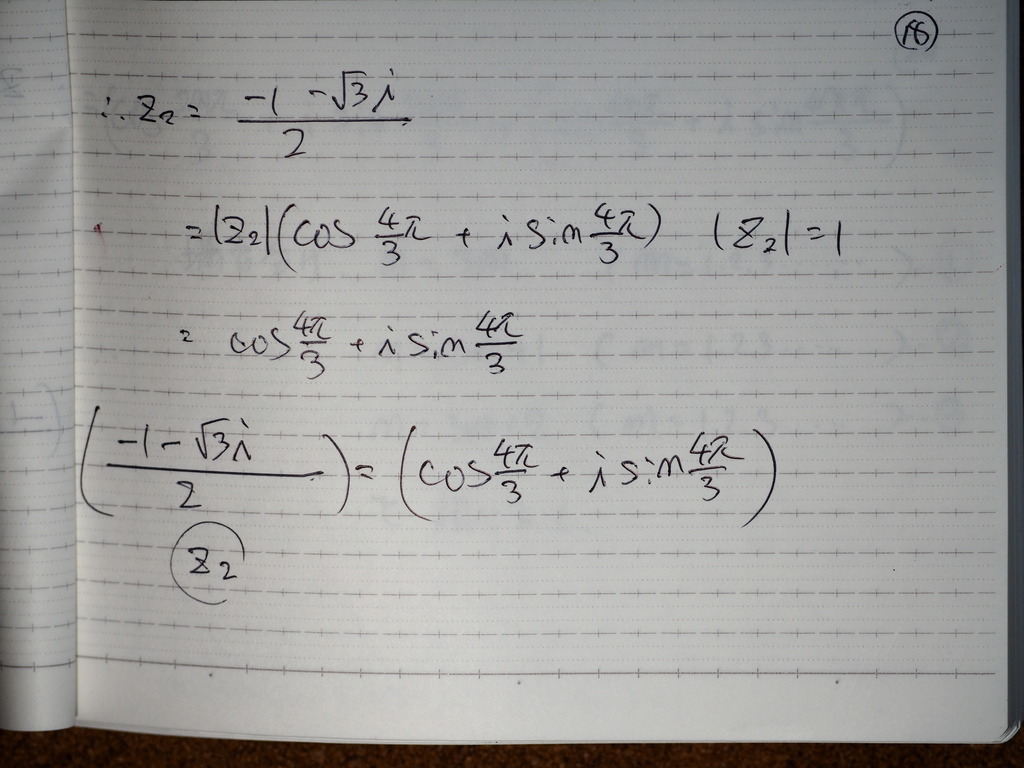 18
∴ z₂ = (-1 - √3i)/2
= |z₂|(cos 4π/3 + i sin 4π/3) |z₂| = 1
= cos 4π/3 + i sin 4π/3
((-1 - √3i)/2) = (cos 4π/3 + i sin 4π/3)
z₂